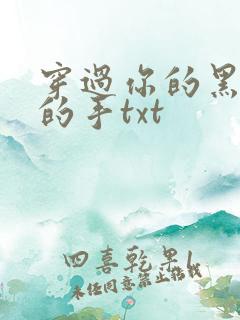 穿過你的黑
的手txt
四喜乾果l
未任同意禁止搭載